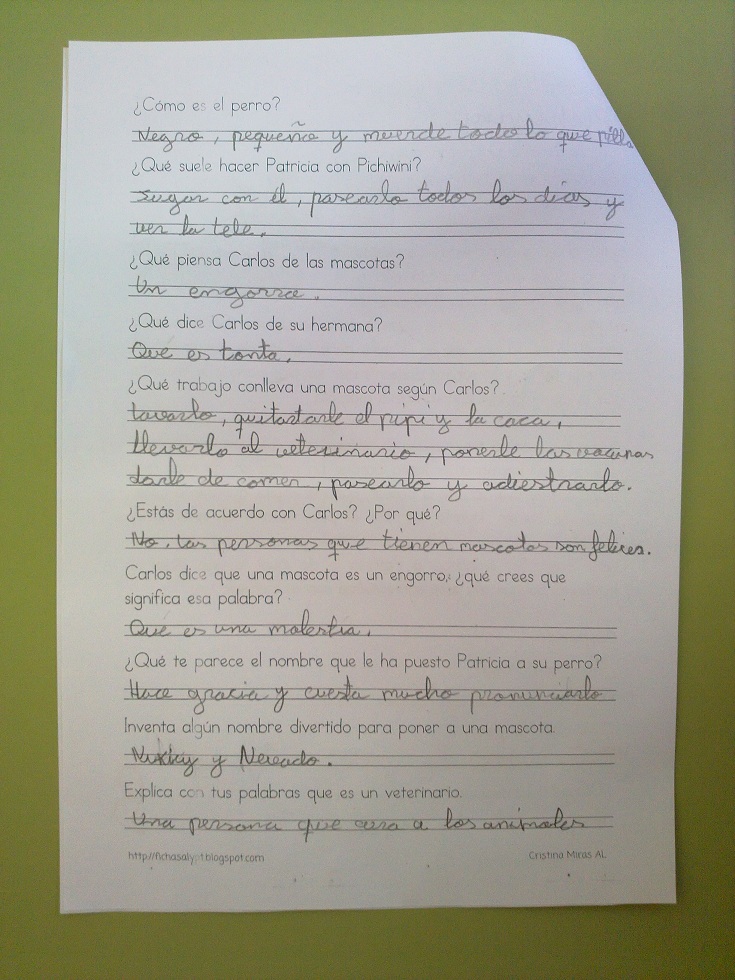 ¿Cómo es el perro?
Negro, pequeño y muerde todo lo que pilla
¿Qué suele hacer Patricia con Pichiwini?
Jugar con él, pasearlo todos los días y
ver la tele.
¿Qué piensa Carlos de las mascotas?
Un engorro.
¿Qué dice Carlos de su hermana?
Que es tonta.
¿Qué trabajo conlleva una mascota según Carlos?
Lavarlo, quitarle el pipí y la caca,
llevarlo al veterinario, ponerle las vacunas
darle de comer, pasearlo y adiestrarlo.
¿Estás de acuerdo con Carlos? ¿Por qué?
No, las personas que tienen mascotas son felices.
Carlos dice que una mascota es un engorro, ¿qué crees que
significa esa palabra?
Que es una molestia.
¿Qué te parece el nombre que le ha puesto Patricia a su perro?
Hace gracia y cuesta mucho pronunciarlo
Inventa algún nombre divertido para poner a una mascota.
y
Explica con tus palabras que es un veterinario.
Una persona que cura a los animales
Cristina Miras AL